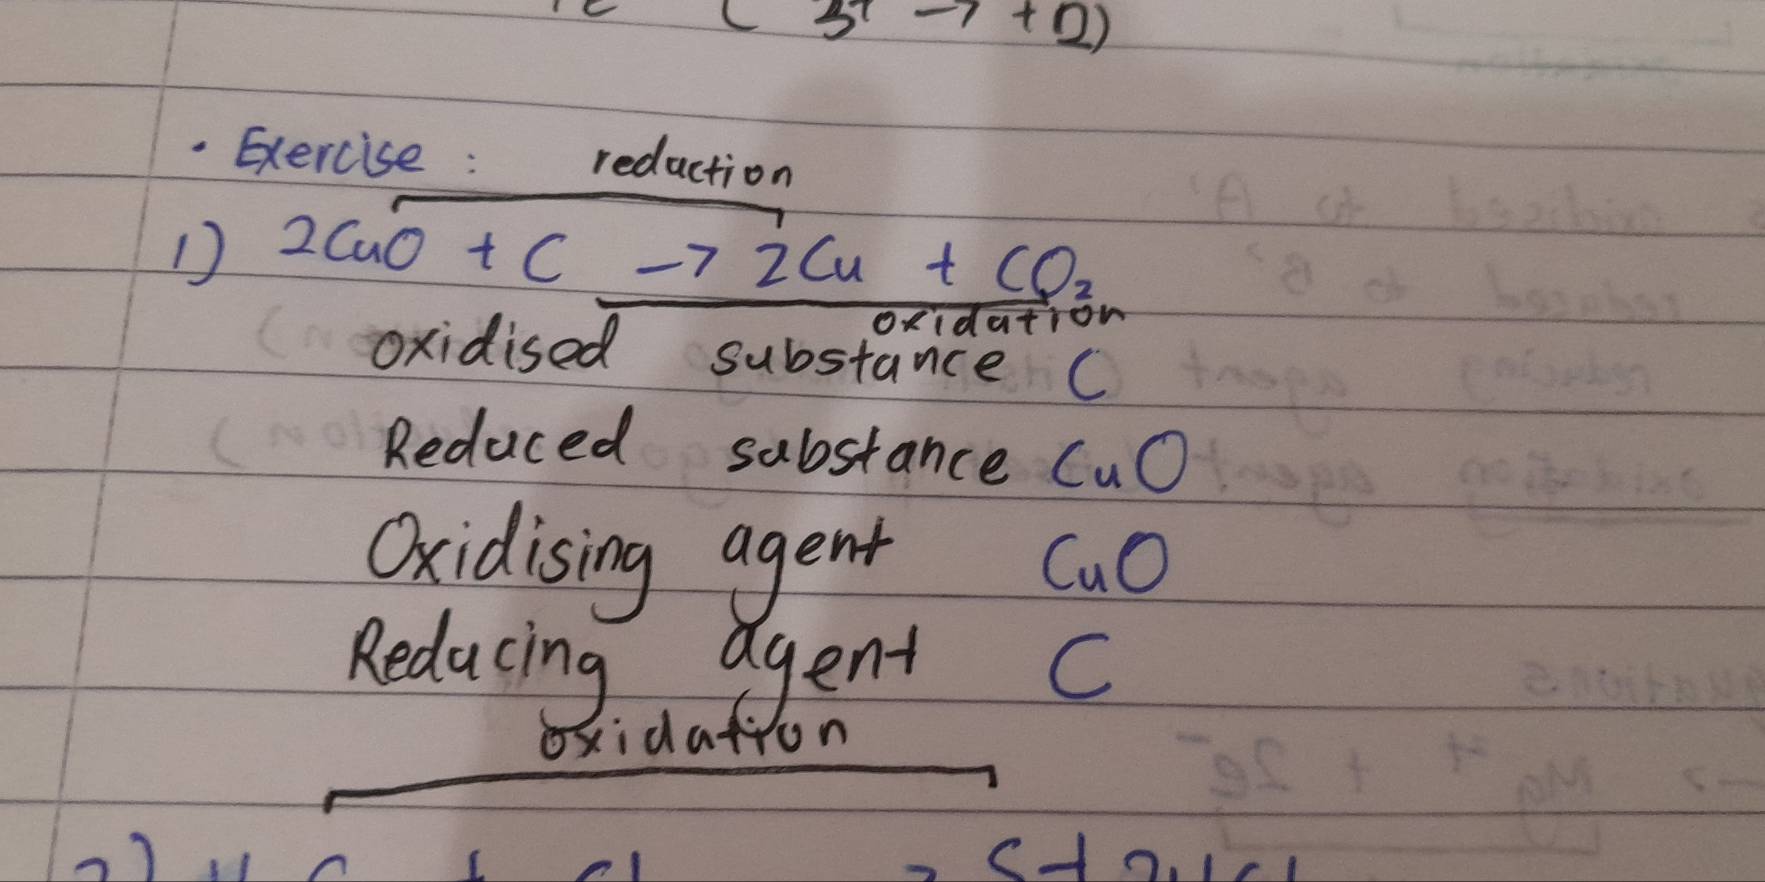 ( 3+ → +2)
• Exercise : reduction
1) 2CuO + C → 2Cu + CO₂
oxidation
oxidised substance C
Reduced substance CuO
Oxidising agent CuO
Reducing agent C
oxidation